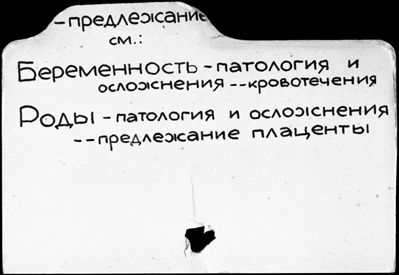 -предлежание
см.:
Беременность-патология и
осложнения--кровотечения
Роды-патология и осложнения
--предлежание плаценты